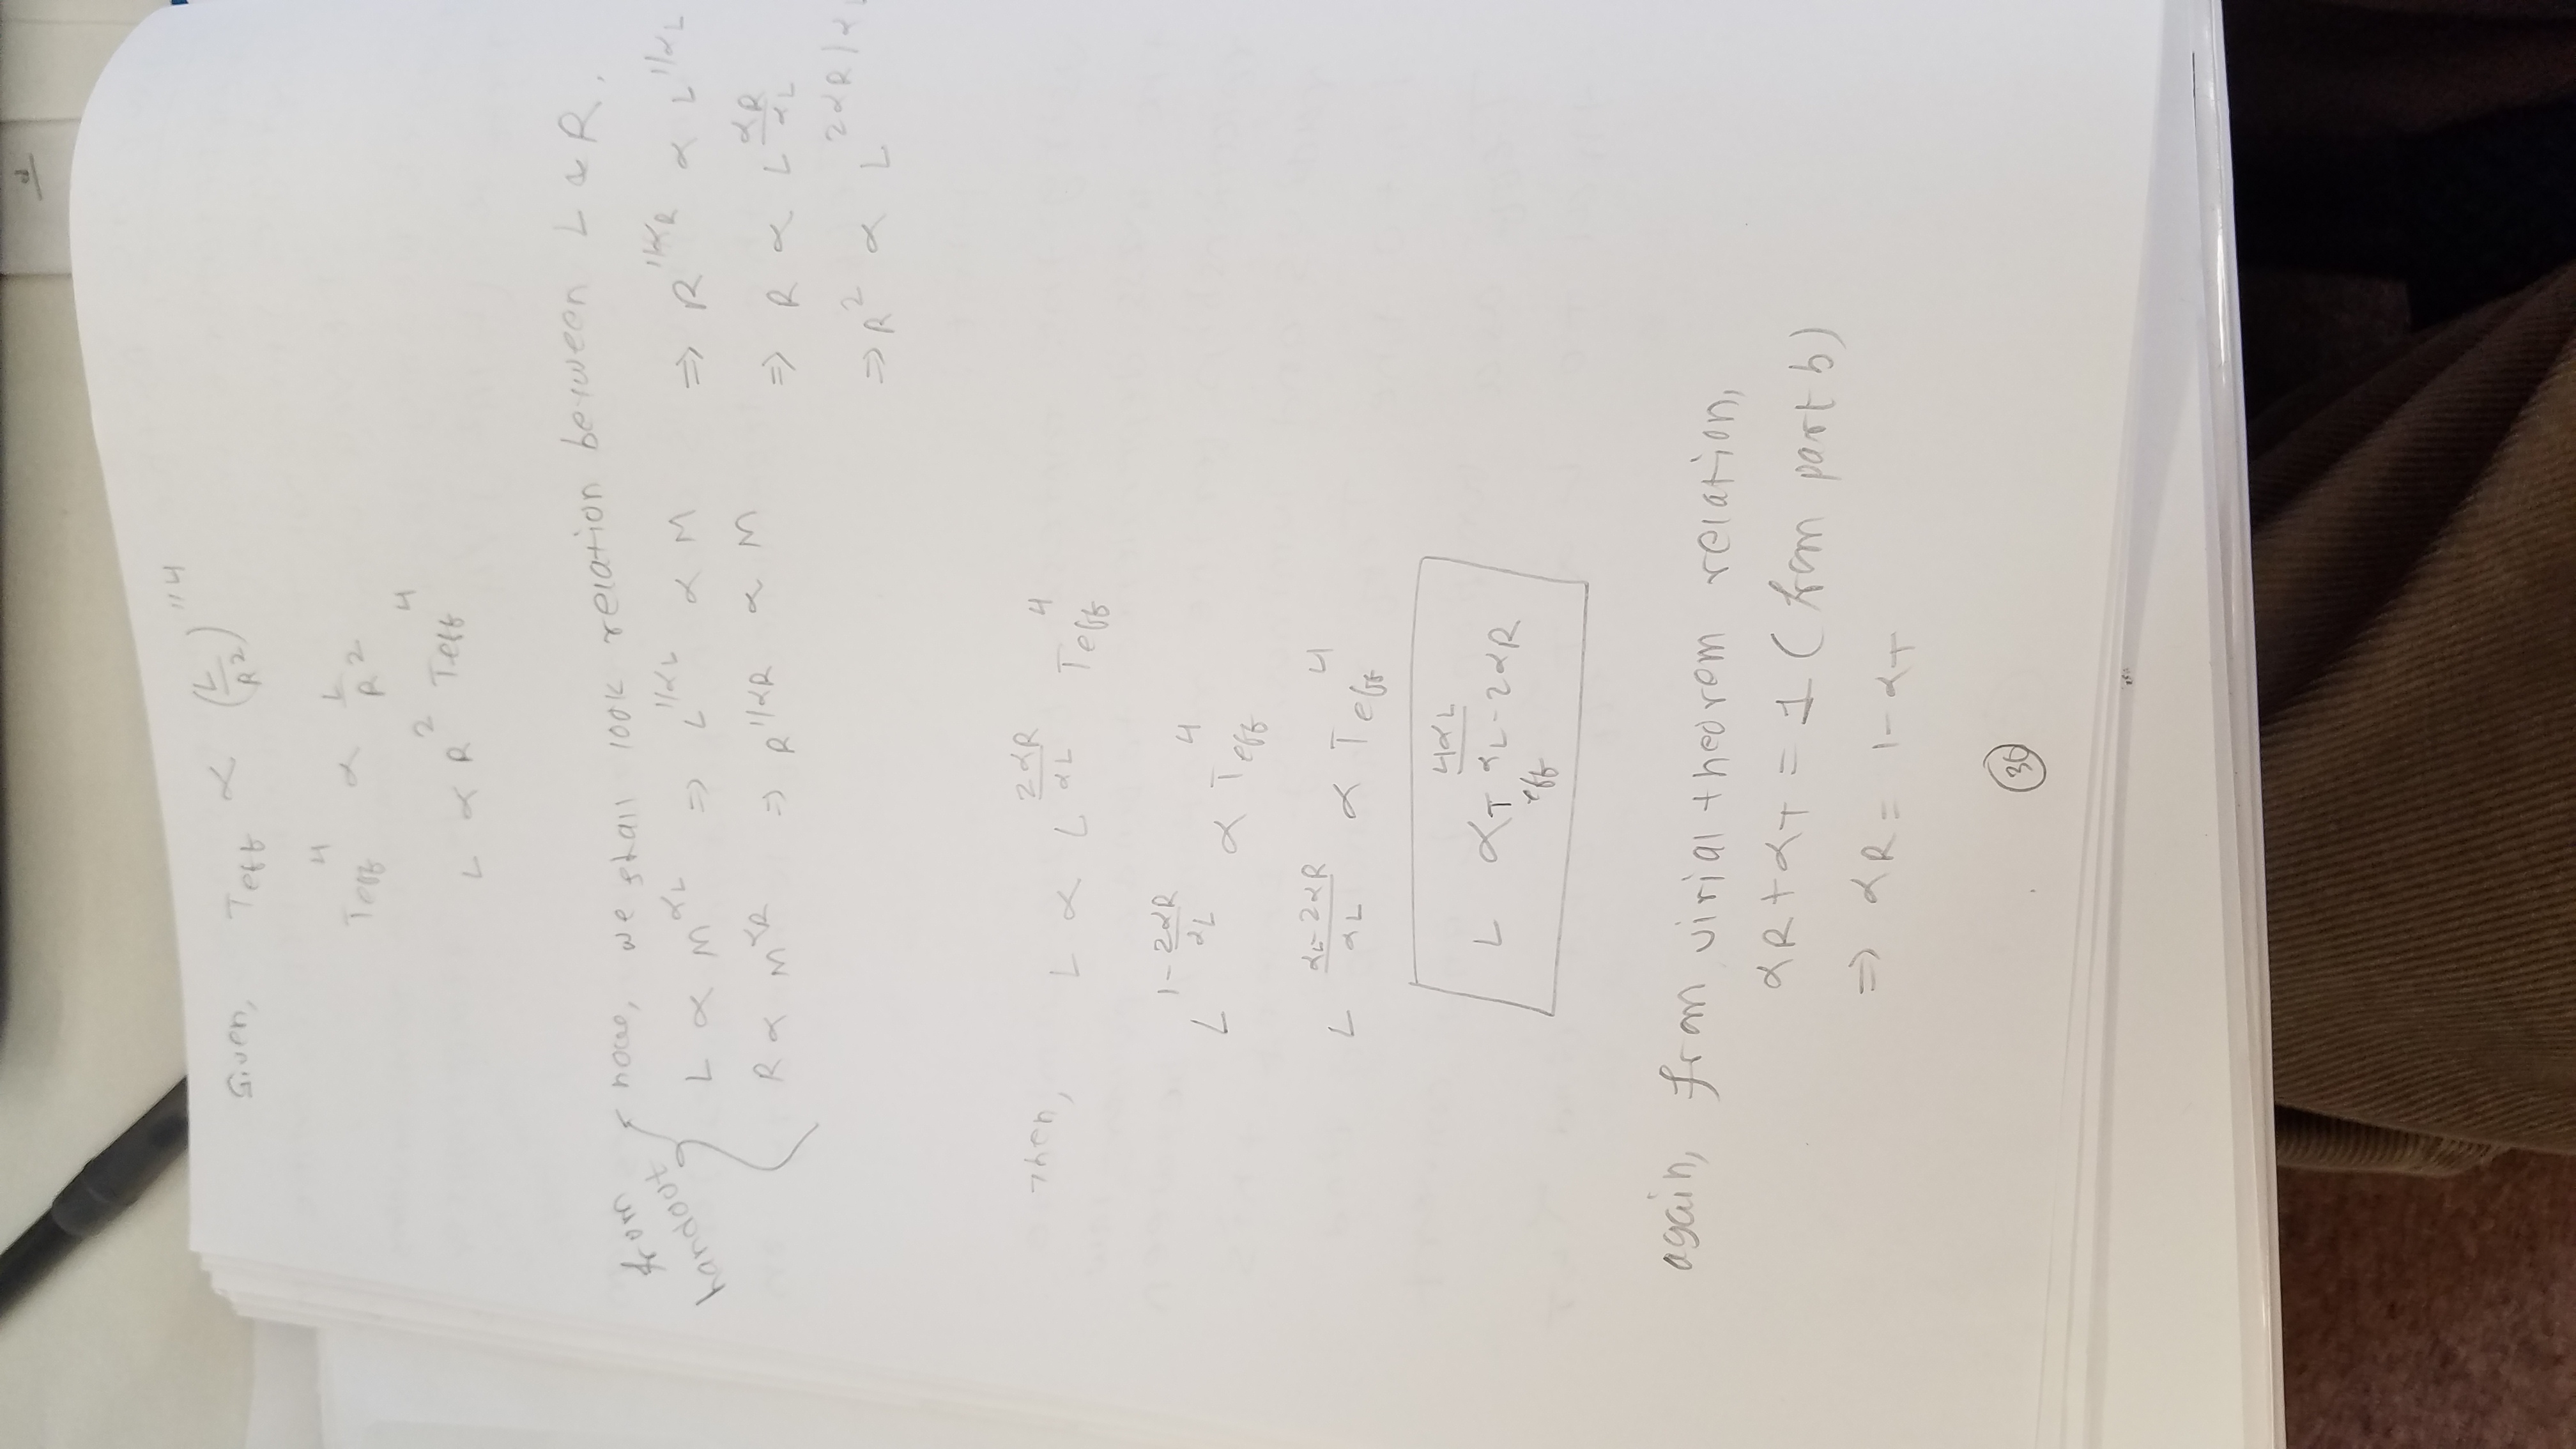 Given, T_eff ∝ (L/R²)^1/4
T_eff⁴ ∝ L/R²
L ∝ R² T_eff⁴
from handout
now, we shall look relation between L & R.
L ∝ M^αL ⇒ L^1/αL ∝ M ⇒ R^1/αR ∝ L^1/αL
R ∝ M^αR ⇒ R^1/αR ∝ M ⇒ R ∝ L^αR/αL
⇒ R² ∝ L^2αR/α
Then, L ∝ L^2αR/αL T_eff⁴
L^1-2αR/αL ∝ T_eff⁴
L^(αL-2αR)/αL ∝ T_eff⁴
L ∝ T_eff^4αL/(αL-2αR)
again, from virial theorem relation,
αR + αT = 1 (from part b)
⇒ αR = 1-αT